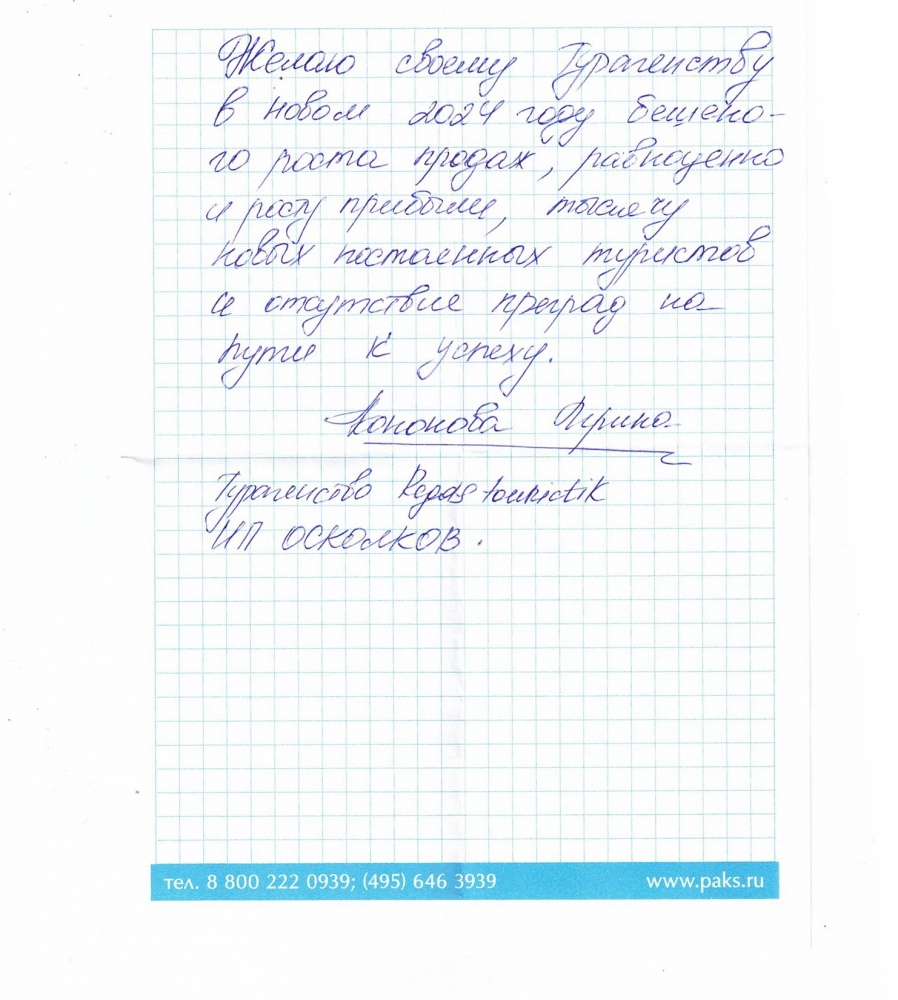 Желаю своему Турагенству
в новом 2024 году бешено-
го роста продах, равноценно
и росту прибыли, тысячу
новых постоенных туристов
и отсутствие преград на
пути к успеху.
Кононова Ирина
Турагенство Pegas touristik
ИП ОСКОЛКОВ.
тел. 8 800 222 0939; (495) 646 3939 www.paks.ru